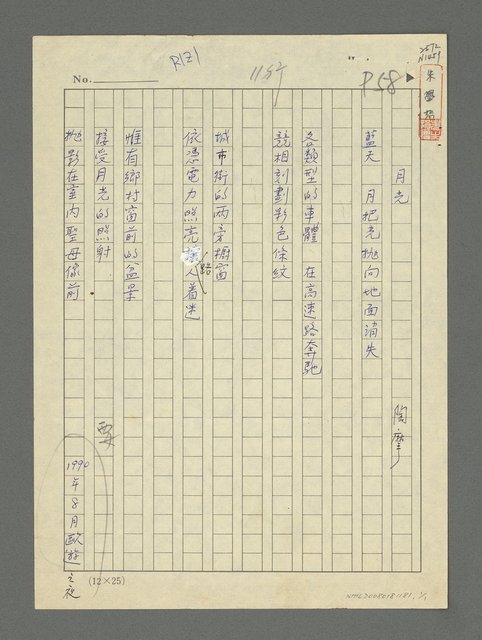 No.
R121
11行
P58
2572
N1459
朱學恕
月光
陶摩
藍天 月把光拋向地面消失
各類型的車體 在高速路奔馳
競相刻劃彩色條紋
城市街的兩旁櫥窗
依憑電力照亮讓路人着迷
惟有鄉村窗前的盆景
接受月光的照射
拋影在室內聖母像前
1990年8月歐遊之夜
(12×25)
NMTL20080181181, 1/1